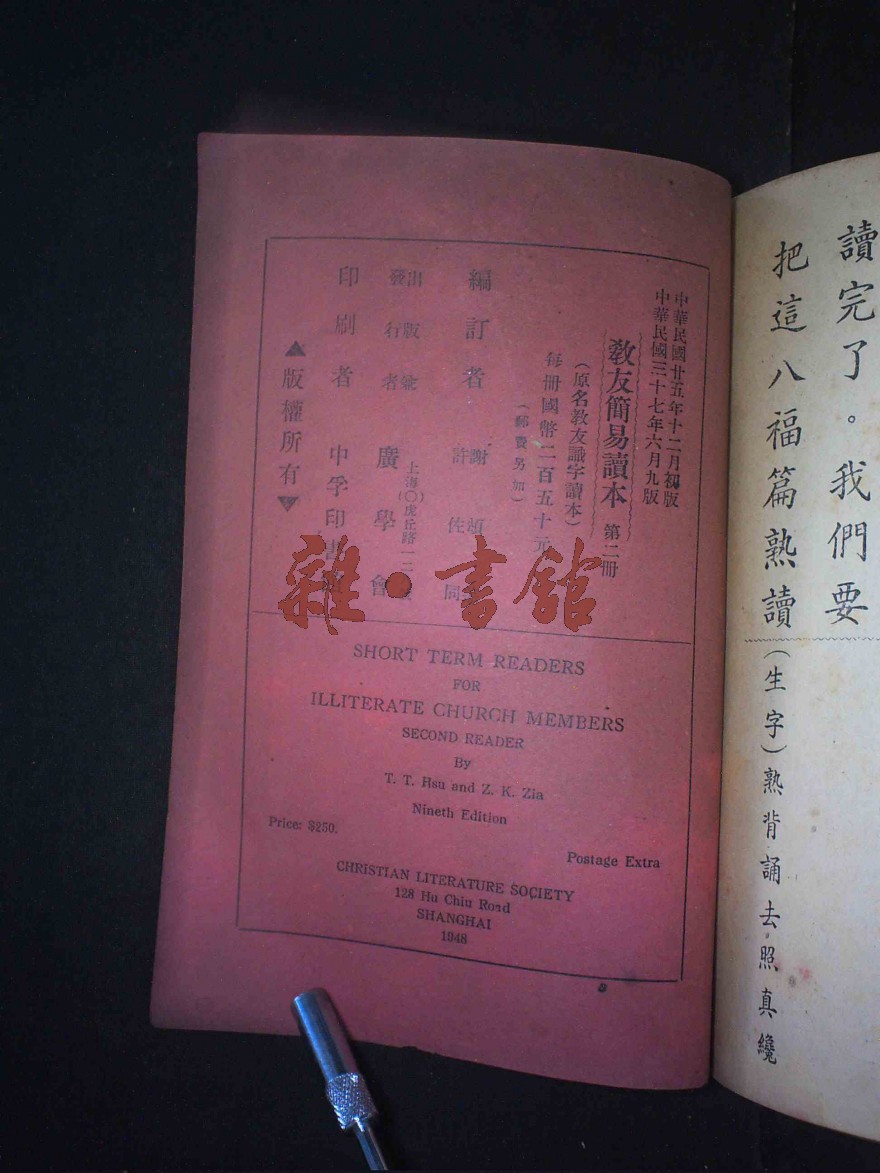 讀完了。我們要
把這八福篇熟讀
(生字)熟背誦去照真纔
中華民國廿五年十二月初版
中華民國三十七年六月九版
教友簡易讀本 第二冊
(原名教友識字讀本)
每冊國幣二百五十元
(郵費另加)
編訂者
謝頌
許佐同
出版兼
發行者
廣學會
上海(〇)虎丘路一二
印刷者 中孚印書
▲版權所有▼
雜·書館
SHORT TERM READERS
FOR
ILLITERATE CHURCH MEMBERS
SECOND READER
By
T. T. Hsu and Z. K. Zia
Nineth Edition
Price: $250.
Postage Extra
CHRISTIAN LITERATURE SOCIETY
128 Hu Chiu Road
SHANGHAI
1948